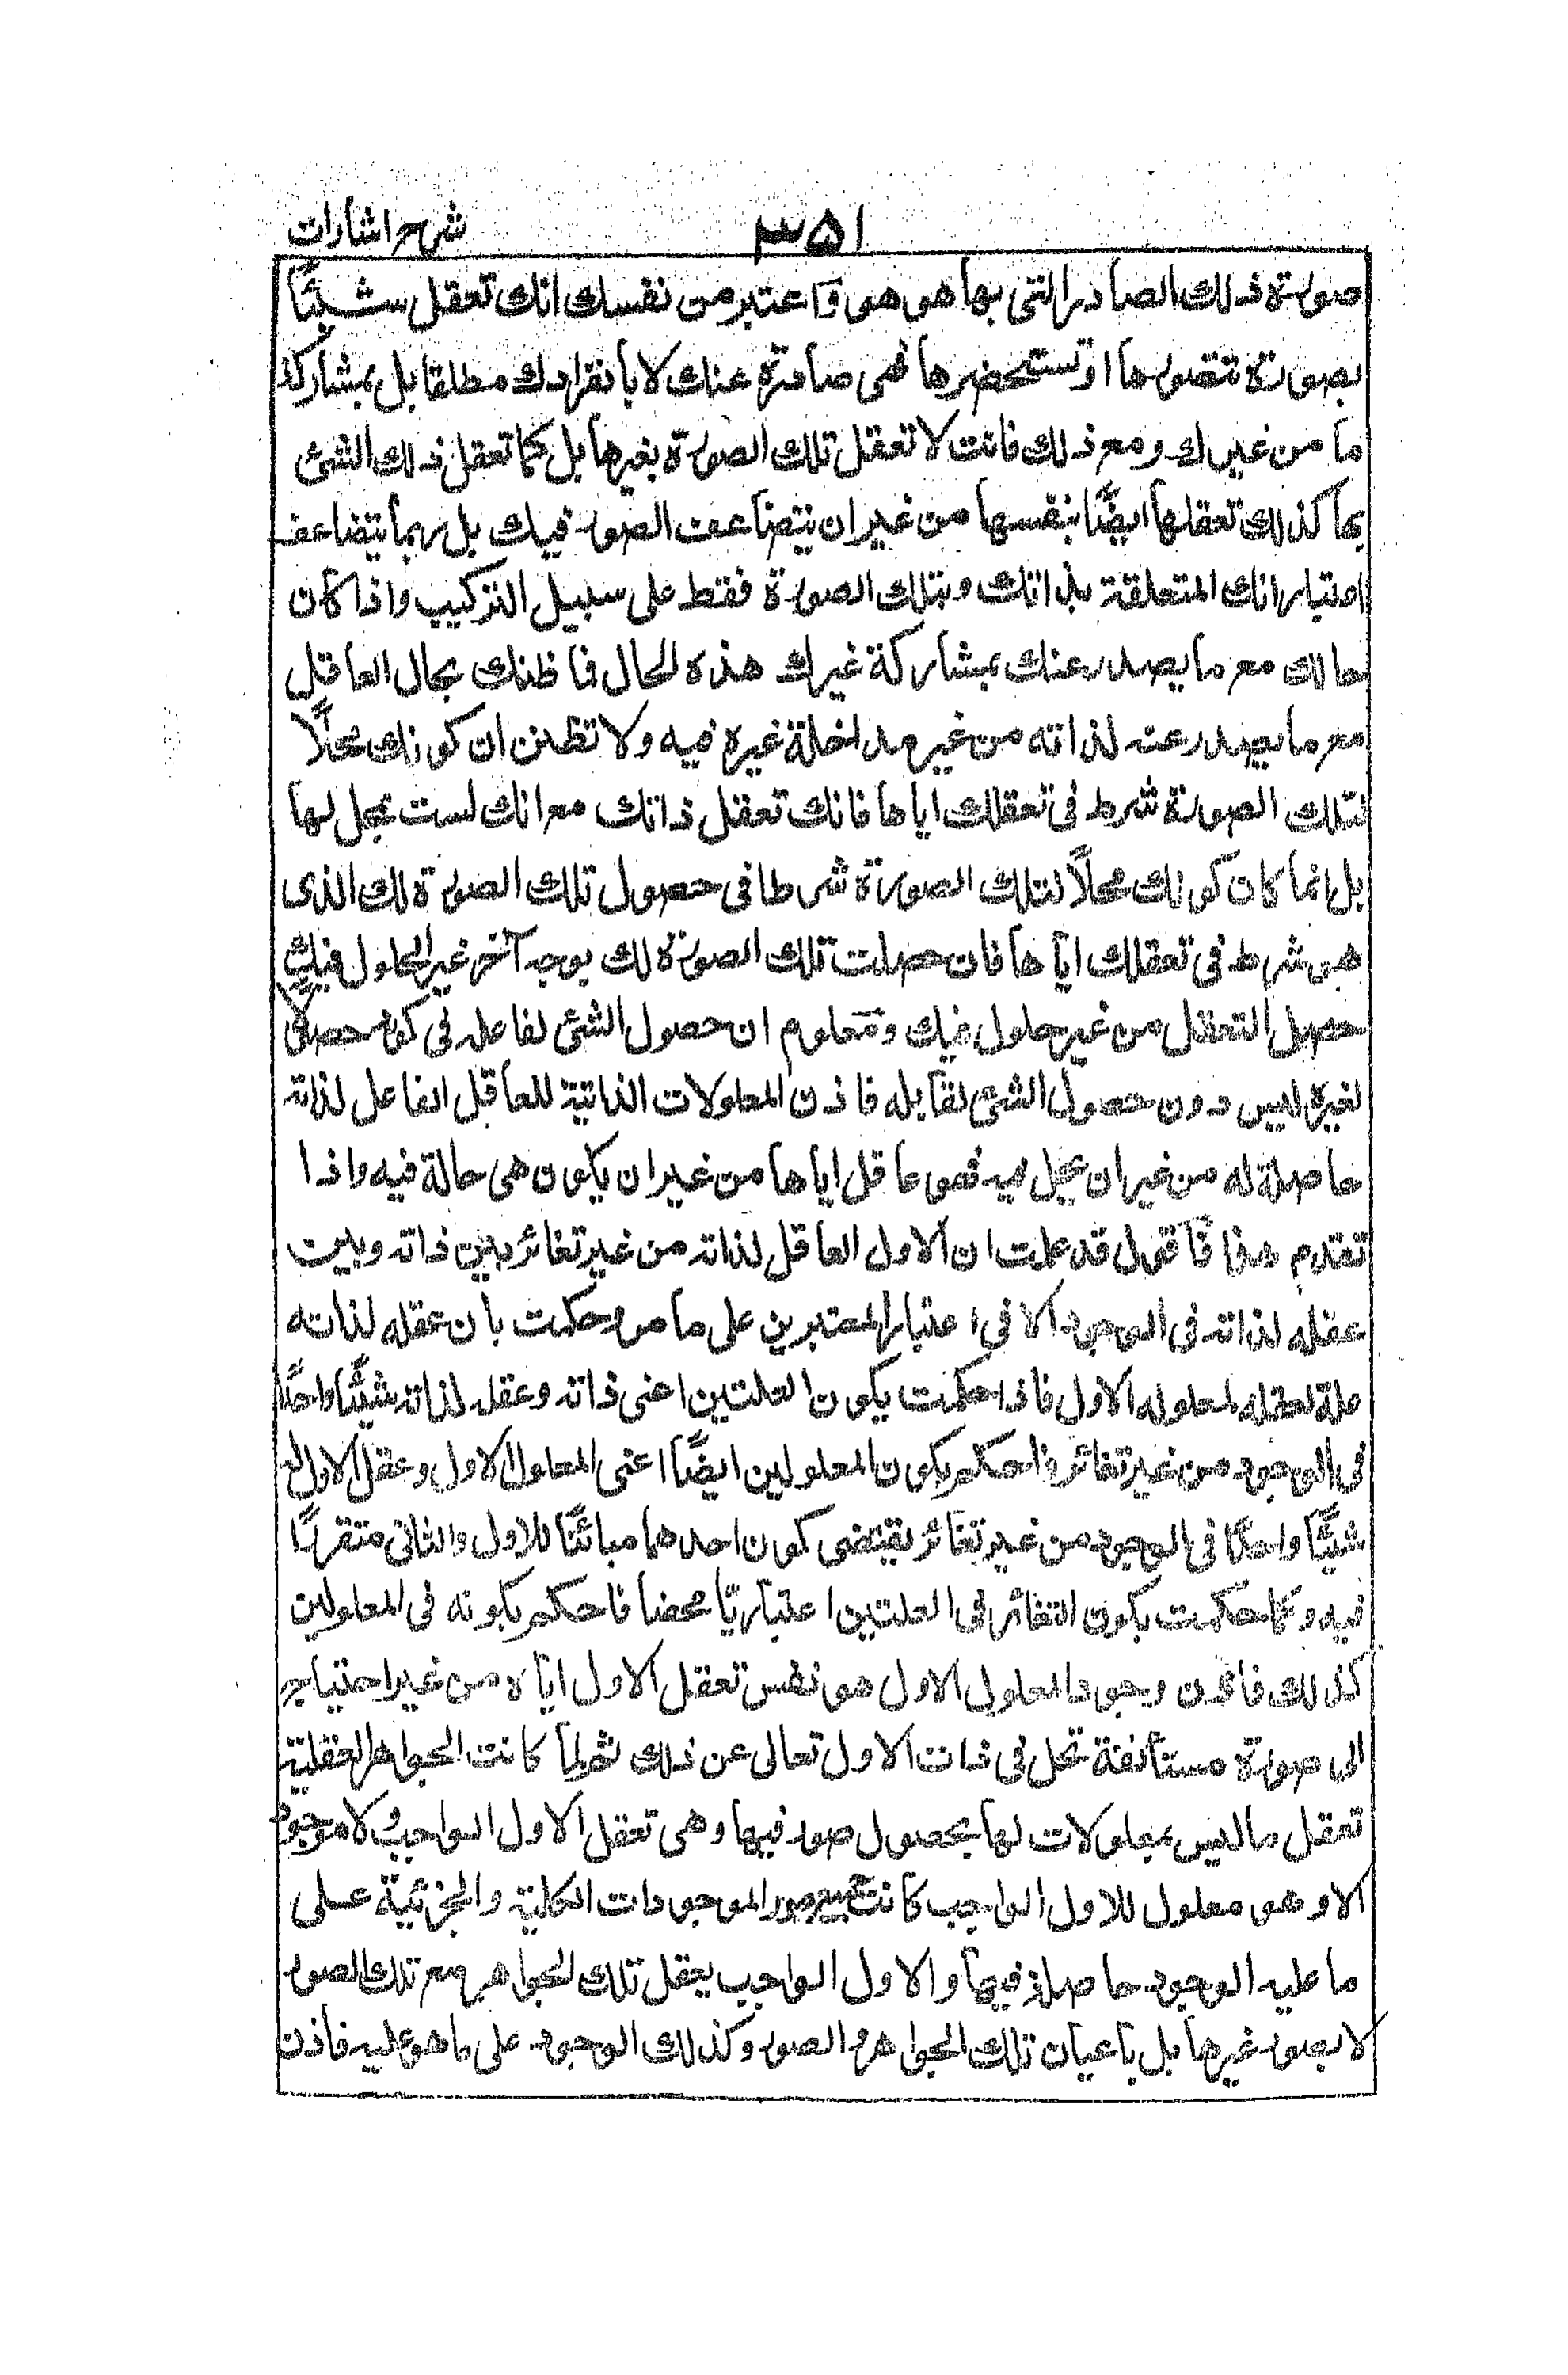 شرح اشارات
٣٥١
صورة ذلك الصادر التى بها هو هو واعتبر من نفسك انك تعقل شيئًا
بصورة تتصورها او تستحضرها فهى صادرة عنك لا بانفرادك مطلقا بل بمشاركة
ما من غيرك ومع ذلك فانت لا تعقل تلك الصورة بغيرها بل كما تعقل ذلك الشئ
بها كذلك تعقلها ايضًا بنفسها من غير ان يتضاعف الصور فيك بل ربما يتضاعف
اعتباراتك المتعلقة بذاتك وبتلك الصورة فقط على سبيل التركيب واذا كان
حالك مع ما يصدر عنك بمشاركة غيرك هذه الحال فما ظنك بحال العاقل
مع ما يصدر عنه لذاته من غير مداخلة غيره فيه ولا تظنن ان كونك محلًا
لتلك الصورة شرط فى تعقلك اياها فانك تعقل ذاتك مع انك لست بمحل لها
بل انما كان كونك محلًا لتلك الصورة شرطا فى حصول تلك الصورة لك الذى
هو شرط فى تعقلك اياها فان حصلت تلك الصورة لك بوجه آخر غير الحلول فيك
حصل التعقل من غير حلول فيك ومعلوم ان حصول الشئ لفاعله فى كونه حصولًا
لغيره ليس دون حصول الشئ لقابله فاذن المعلولات الذاتية للعاقل الفاعل لذاته
حاصلة له من غير ان يحل فيه فهو عاقل اياها من غير ان يكون هى حالة فيه واذا
تقدم هذا فاقول قد علمت ان الاول العاقل لذاته من غير تغائر بين ذاته وبين
عقله لذاته فى الوجود الا فى اعتبار المعتبرين على ما مر وحكمت بان عقله لذاته
علة لعقله لمعلوله الاول فاذا حكمت بكون العلتين اعنى ذاته وعقله لذاته شيئًا واحدًا
فى الوجود من غير تغائر فاحكم بكون المعلولين ايضًا اعنى المعلول الاول وعقل الاول له
شيئًا واحدًا فى الوجود من غير تغائر يقتضى كون احدهما مبائنًا للاول والثانى متقررًا
فيه وكما حكمت بكون التغائر فى العلتين اعتباريًا محضا فاحكم بكونه فى المعلولين
كذلك فاذن وجود المعلول الاول هو نفس تعقل الاول اياه من غير احتياج
الى صورة مستأنفة تحل فى ذات الاول تعالى عن ذلك ثم لما كانت الجواهر العقلية
تعقل ما ليس بمعلولات لها بحصول صور فيها وهى تعقل الاول الواجب ولا موجود
الا وهو معلول للاول الواجب كانت جميع صور الموجودات الكلية والجزئية على
ما عليه الوجود حاصلة فيها والاول الواجب يعقل تلك الجواهر مع تلك الصور
لا بصور غيرها بل باعيان تلك الجواهر والصور وكذلك الوجود على ما هو عليه فاذن